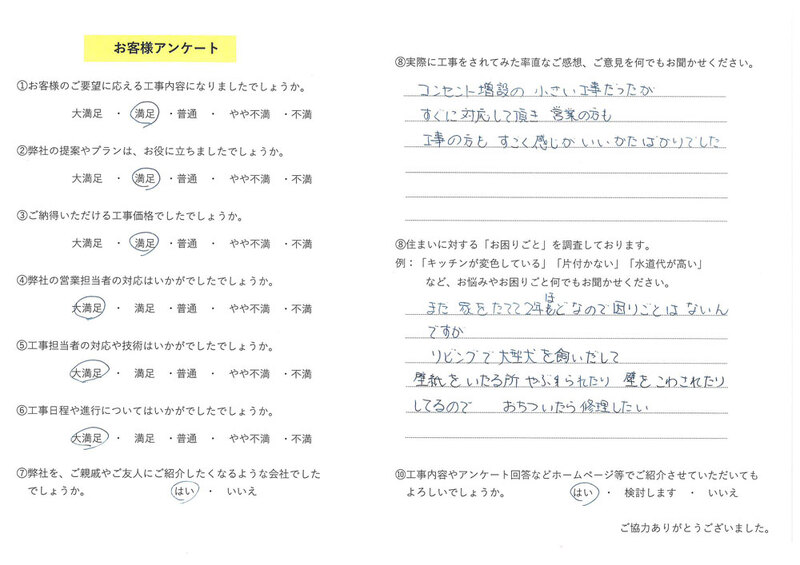 お客様アンケート
①お客様のご要望に応える工事内容になりましたでしょうか。
大満足 ・ 満足 ・普通 ・ やや不満 ・不満
②弊社の提案やプランは、お役に立ちましたでしょうか。
大満足 ・ 満足 ・普通 ・ やや不満 ・不満
③ご納得いただける工事価格でしたでしょうか。
大満足 ・ 満足 ・普通 ・ やや不満 ・不満
④弊社の営業担当者の対応はいかがでしたでしょうか。
大満足 ・ 満足 ・普通 ・ やや不満 ・不満
⑤工事担当者の対応や技術はいかがでしたでしょうか。
大満足 ・ 満足 ・普通 ・ やや不満 ・不満
⑥工事日程や進行についてはいかがでしたでしょうか。
大満足 ・ 満足 ・普通 ・ やや不満 ・不満
⑦弊社を、ご親戚やご友人にご紹介したくなるような会社でした
でしょうか。 はい ・ いいえ
⑧実際に工事をされてみた率直なご感想、ご意見を何でもお聞かせください。
コンセント増設の 小さい工事だったが
すぐに対応して頂き 営業の方も
工事の方も すごく感じがいいかたばかりでした
⑧住まいに対する「お困りごと」を調査しております。
例：「キッチンが変色している」「片付かない」「水道代が高い」
など、お悩みやお困りごと何でもお聞かせください。
まだ 家をたてて2年ほどなので困りごとは ないん
ですが
リビングで大型犬を飼いだして
壁紙をいたる所 やぶられたり 壁をこわされたり
してるので おちついたら修理したい
⑩工事内容やアンケート回答などホームページ等でご紹介させていただいても
よろしいでしょうか。 はい ・ 検討します ・ いいえ
ご協力ありがとうございました。